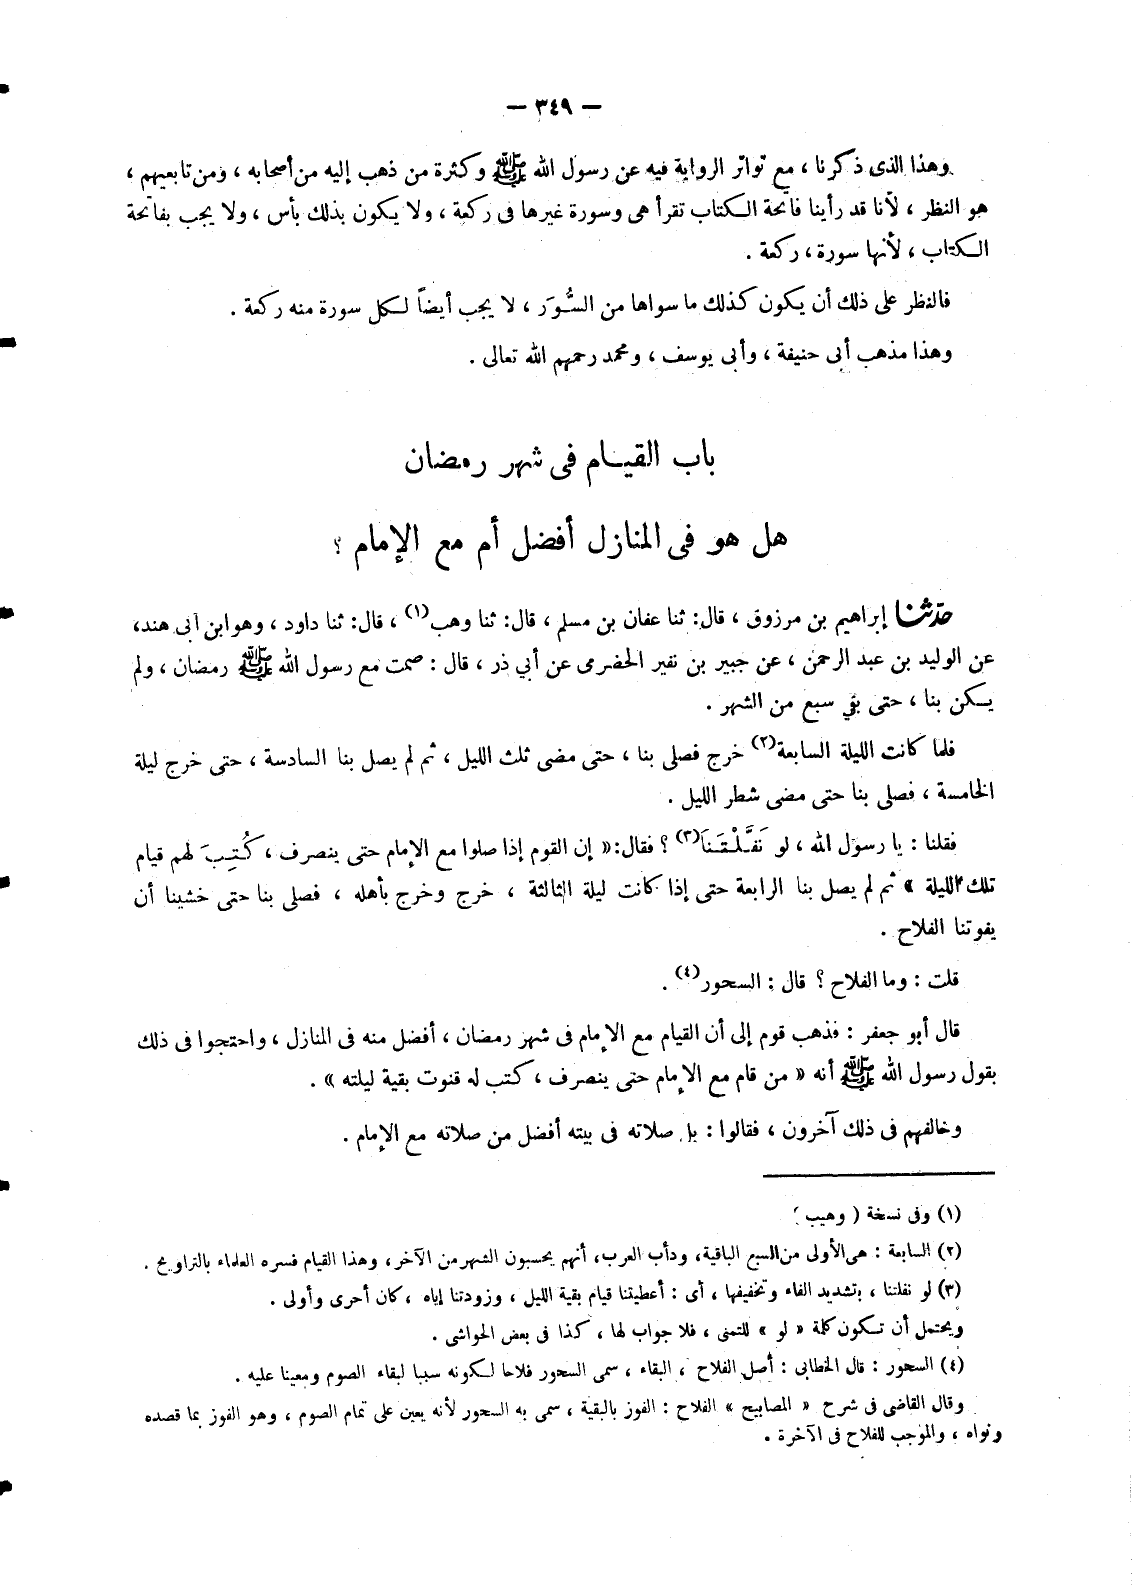 — ٣٤٩ —
وهذا الذى ذكرنا ، مع تواتر الرواية فيه عن رسول الله ﷺ وكثرة من ذهب إليه من أصحابه ، ومن تابعيهم ،
هو النظر ، لأنا قد رأينا فاتحة الكتاب تقرأ هى وسورة غيرها فى ركعة ، ولا يكون بذلك بأس ، ولا يجب بفاتحة
الكتاب ، لأنها سورة ، ركعة .
فالنظر على ذلك أن يكون كذلك ما سواها من السُّوَر ، لا يجب أيضاً لكل سورة منه ركعة .
وهذا مذهب أبى حنيفة ، وأبى يوسف ، ومحمد رحمهم الله تعالى .
باب القيام فى شهر رمضان
هل هو فى المنازل أفضل أم مع الإمام ؟
حدّثنا إبراهيم بن مرزوق ، قال: ثنا عفان بن مسلم ، قال: ثنا وهب(١) ، قال: ثنا داود ، وهو ابن أبى هند،
عن الوليد بن عبد الرحمن ، عن جبير بن نفير الحضرمى عن أبي ذر ، قال : صمت مع رسول الله ﷺ رمضان ، ولم
يكن بنا ، حتى بقي سبع من الشهر .
فلما كانت الليلة السابعة(٢) خرج فصلى بنا ، حتى مضى ثلث الليل ، ثم لم يصل بنا السادسة ، حتى خرج ليلة
الخامسة ، فصلى بنا حتى مضى شطر الليل .
فقلنا : يا رسول الله ، لو نَفَّلْتَنَا(٣) ؟ فقال: « إن القوم إذا صلوا مع الإمام حتى ينصرف ، كُتِبَ لهم قيام
تلك الليلة » ثم لم يصل بنا الرابعة حتى إذا كانت ليلة الثالثة ، خرج وخرج بأهله ، فصلى بنا حتى خشينا أن
يفوتنا الفلاح .
قلت : وما الفلاح ؟ قال : السحور(٤) .
قال أبو جعفر : فذهب قوم إلى أن القيام مع الإمام فى شهر رمضان ، أفضل منه فى المنازل ، واحتجوا فى ذلك
بقول رسول الله ﷺ أنه « من قام مع الإمام حتى ينصرف ، كتب له قنوت بقية ليلته » .
وخالفهم فى ذلك آخرون ، فقالوا : بل صلاته فى بيته أفضل من صلاته مع الإمام .
(١) وفى نسخة ( وهيب )
(٢) السابعة : هى الأولى من السبع الباقية، ودأب العرب، أنهم يحسبون الشهر من الآخر، وهذا القيام فسره العلماء بالتراويح .
(٣) لو نفلتنا ، بتشديد الفاء وتخفيفها ، أى : أعطيتنا قيام بقية الليل ، وزودتنا إياه ، كان أحرى وأولى .
ويحتمل أن تكون كلمة « لو » للتمنى ، فلا جواب لها ، كذا فى بعض الحواشى .
(٤) السحور : قال الخطابى : أصل الفلاح ، البقاء ، سمى السحور فلاحا لكونه سببا لبقاء الصوم ومعينا عليه .
وقال القاضى فى شرح « المصابيح » الفلاح : الفوز بالبقية ، سمى به السحور لأنه يعين على تمام الصوم ، وهو الفوز بما قصده
ونواه ، والموجب للفلاح فى الآخرة .